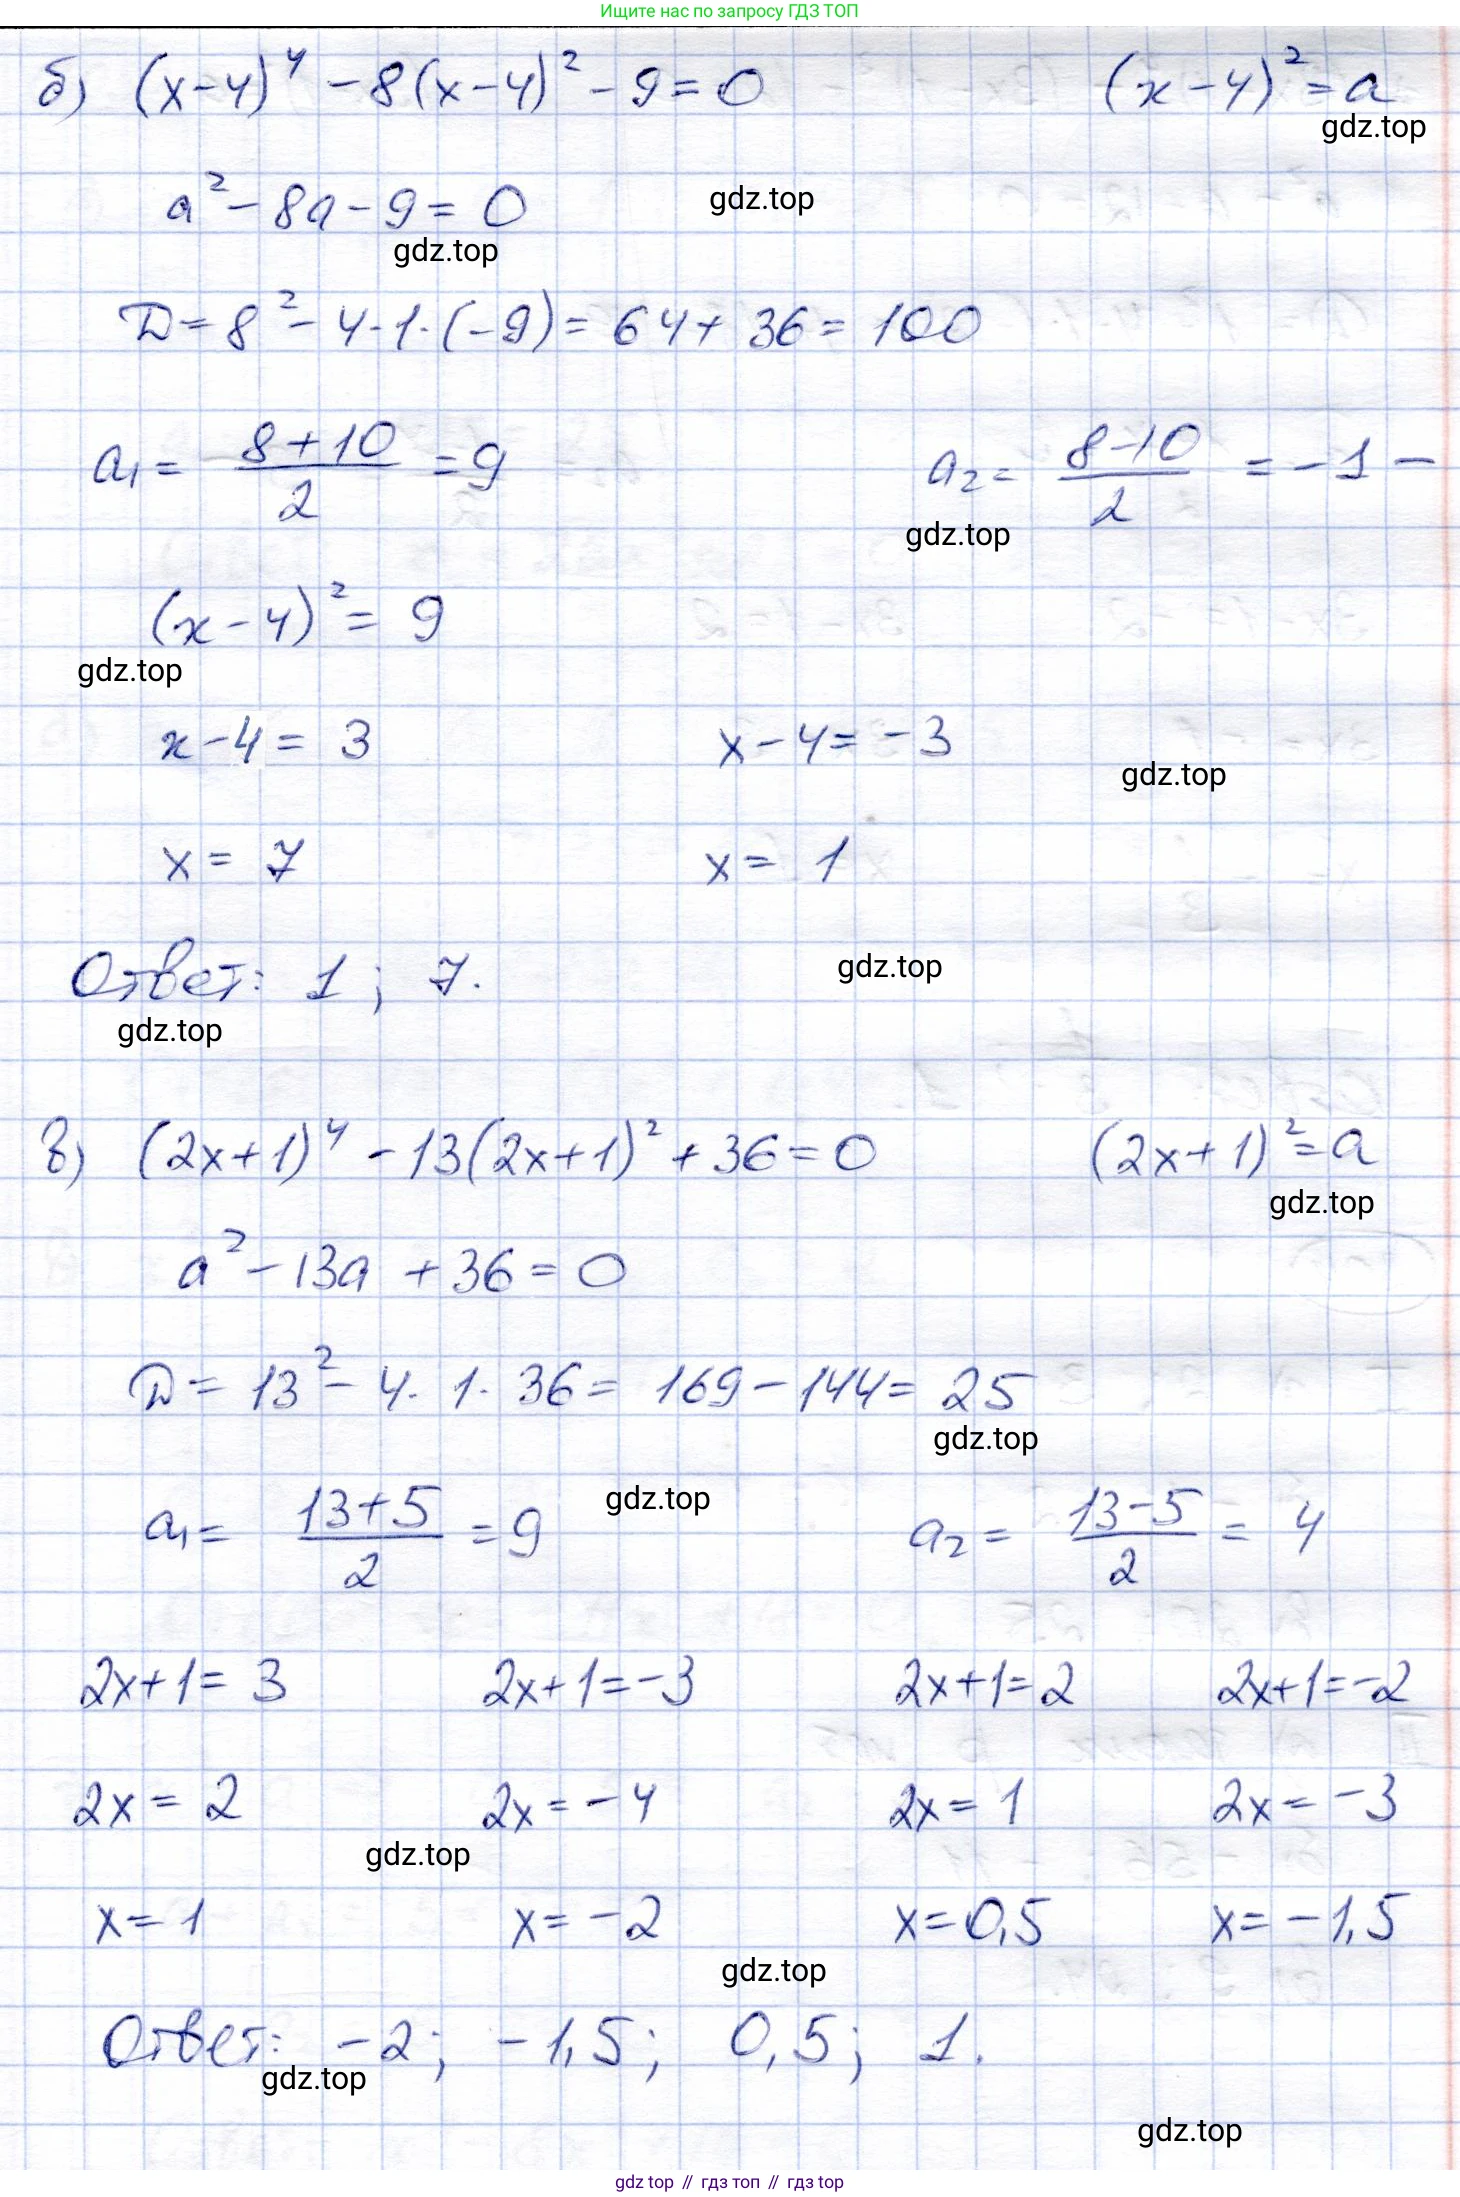 Ищите нас по запросу ГДЗ ТОП
б) (x-4)⁴ - 8(x-4)² - 9 = 0 (x-4)² = a
gdz.top
a² - 8a - 9 = 0 gdz.top
gdz.top
D = 8² - 4·1·(-9) = 64 + 36 = 100
a₁ = (8+10)/2 = 9 a₂ = (8-10)/2 = -1 -
gdz.top
(x-4)² = 9
gdz.top
x-4 = 3 x-4 = -3
gdz.top
x = 7 x = 1
Ответ: 1; 7. gdz.top
gdz.top
в) (2x+1)⁴ - 13(2x+1)² + 36 = 0 (2x+1)² = a
gdz.top
a² - 13a + 36 = 0
D = 13² - 4·1·36 = 169 - 144 = 25
gdz.top
a₁ = (13+5)/2 = 9 gdz.top a₂ = (13-5)/2 = 4
2x+1 = 3 2x+1 = -3 2x+1 = 2 2x+1 = -2
2x = 2 2x = -4 2x = 1 2x = -3
gdz.top
x = 1 x = -2 x = 0,5 x = -1,5
gdz.top
Ответ: -2; -1,5; 0,5; 1.
gdz.top
gdz.top
gdz top // гдз топ // гдз top